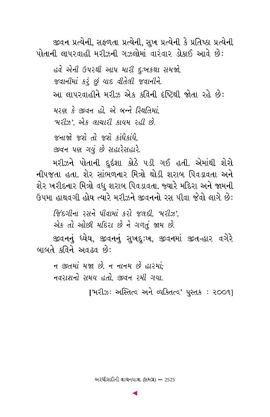 જીવન પ્રત્યેની, સફળતા પ્રત્યેની, સુખ પ્રત્યેની કે પ્રતિષ્ઠા પ્રત્યેની
પોતાની લાપરવાહી મરીઝની ગઝલોમાં વારંવાર ડોકાઈ આવે છે:
હવે એની ઉપરથી આપ મારી દુઃખકથા સમજો,
જવાનીમાં કરું છું યાદ વીતેલી જવાનીને.
આ લાપરવાહીને મરીઝ એક કવિની દૃષ્ટિથી જોતા રહે છે:
મરણ કે જીવન હો, એ બન્ને સ્થિતિમાં,
'મરીઝ', એક લાચારી કાયમ રહી છે.
જનાજો જશે તો જશે કાંધેકાંધે,
જીવન પણ ગયું છે સહારેસહારે.
મરીઝને પોતાની દુર્દશા કોઠે પડી ગઈ હતી. એમાંથી શેરો
નીપજતા હતા. શેર સાંભળનાર મિત્રો થોડી શરાબ પિવડાવતા અને
શેર ખરીદનાર મિત્રો વધુ શરાબ પિવડાવતા. જ્યારે મદિરા અને જામની
ઉપમા હાથવગી હોય ત્યારે મરીઝને જીવનનો રસ પીવા જેવો લાગે છે:
જિંદગીના રસને પીવામાં કરો જલદી, 'મરીઝ',
એક તો ઓછી મદિરા છે ને ગળતું જામ છે.
જીવનનું ધ્યેય, જીવનનું સુખદુઃખ, જીવનમાં જીતહાર વગેરે
બાબતે કવિને અવઢવ છે:
ન જીતમાં મજા છે, ન નાનમ છે હારમાં;
નવરાશનો સમય હતો, જીવન રમી ગયા.
['મરીઝ: અસ્તિત્વ અને વ્યક્તિત્વ' પુસ્તક : ૨૦૦૧]
2525